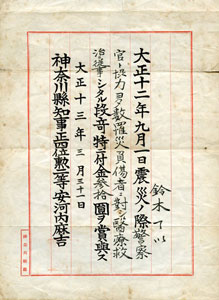 鈴木了以
大正十二年九月一日震災ノ際警察
官ト協力多数罹災負傷者ニ対シ医療救
治ニ従事シタル段奇特ニ付金参拾圓ヲ賞與ス
大正十三年三月三十一日
神奈川縣知事正四位勲二等安河内麻吉